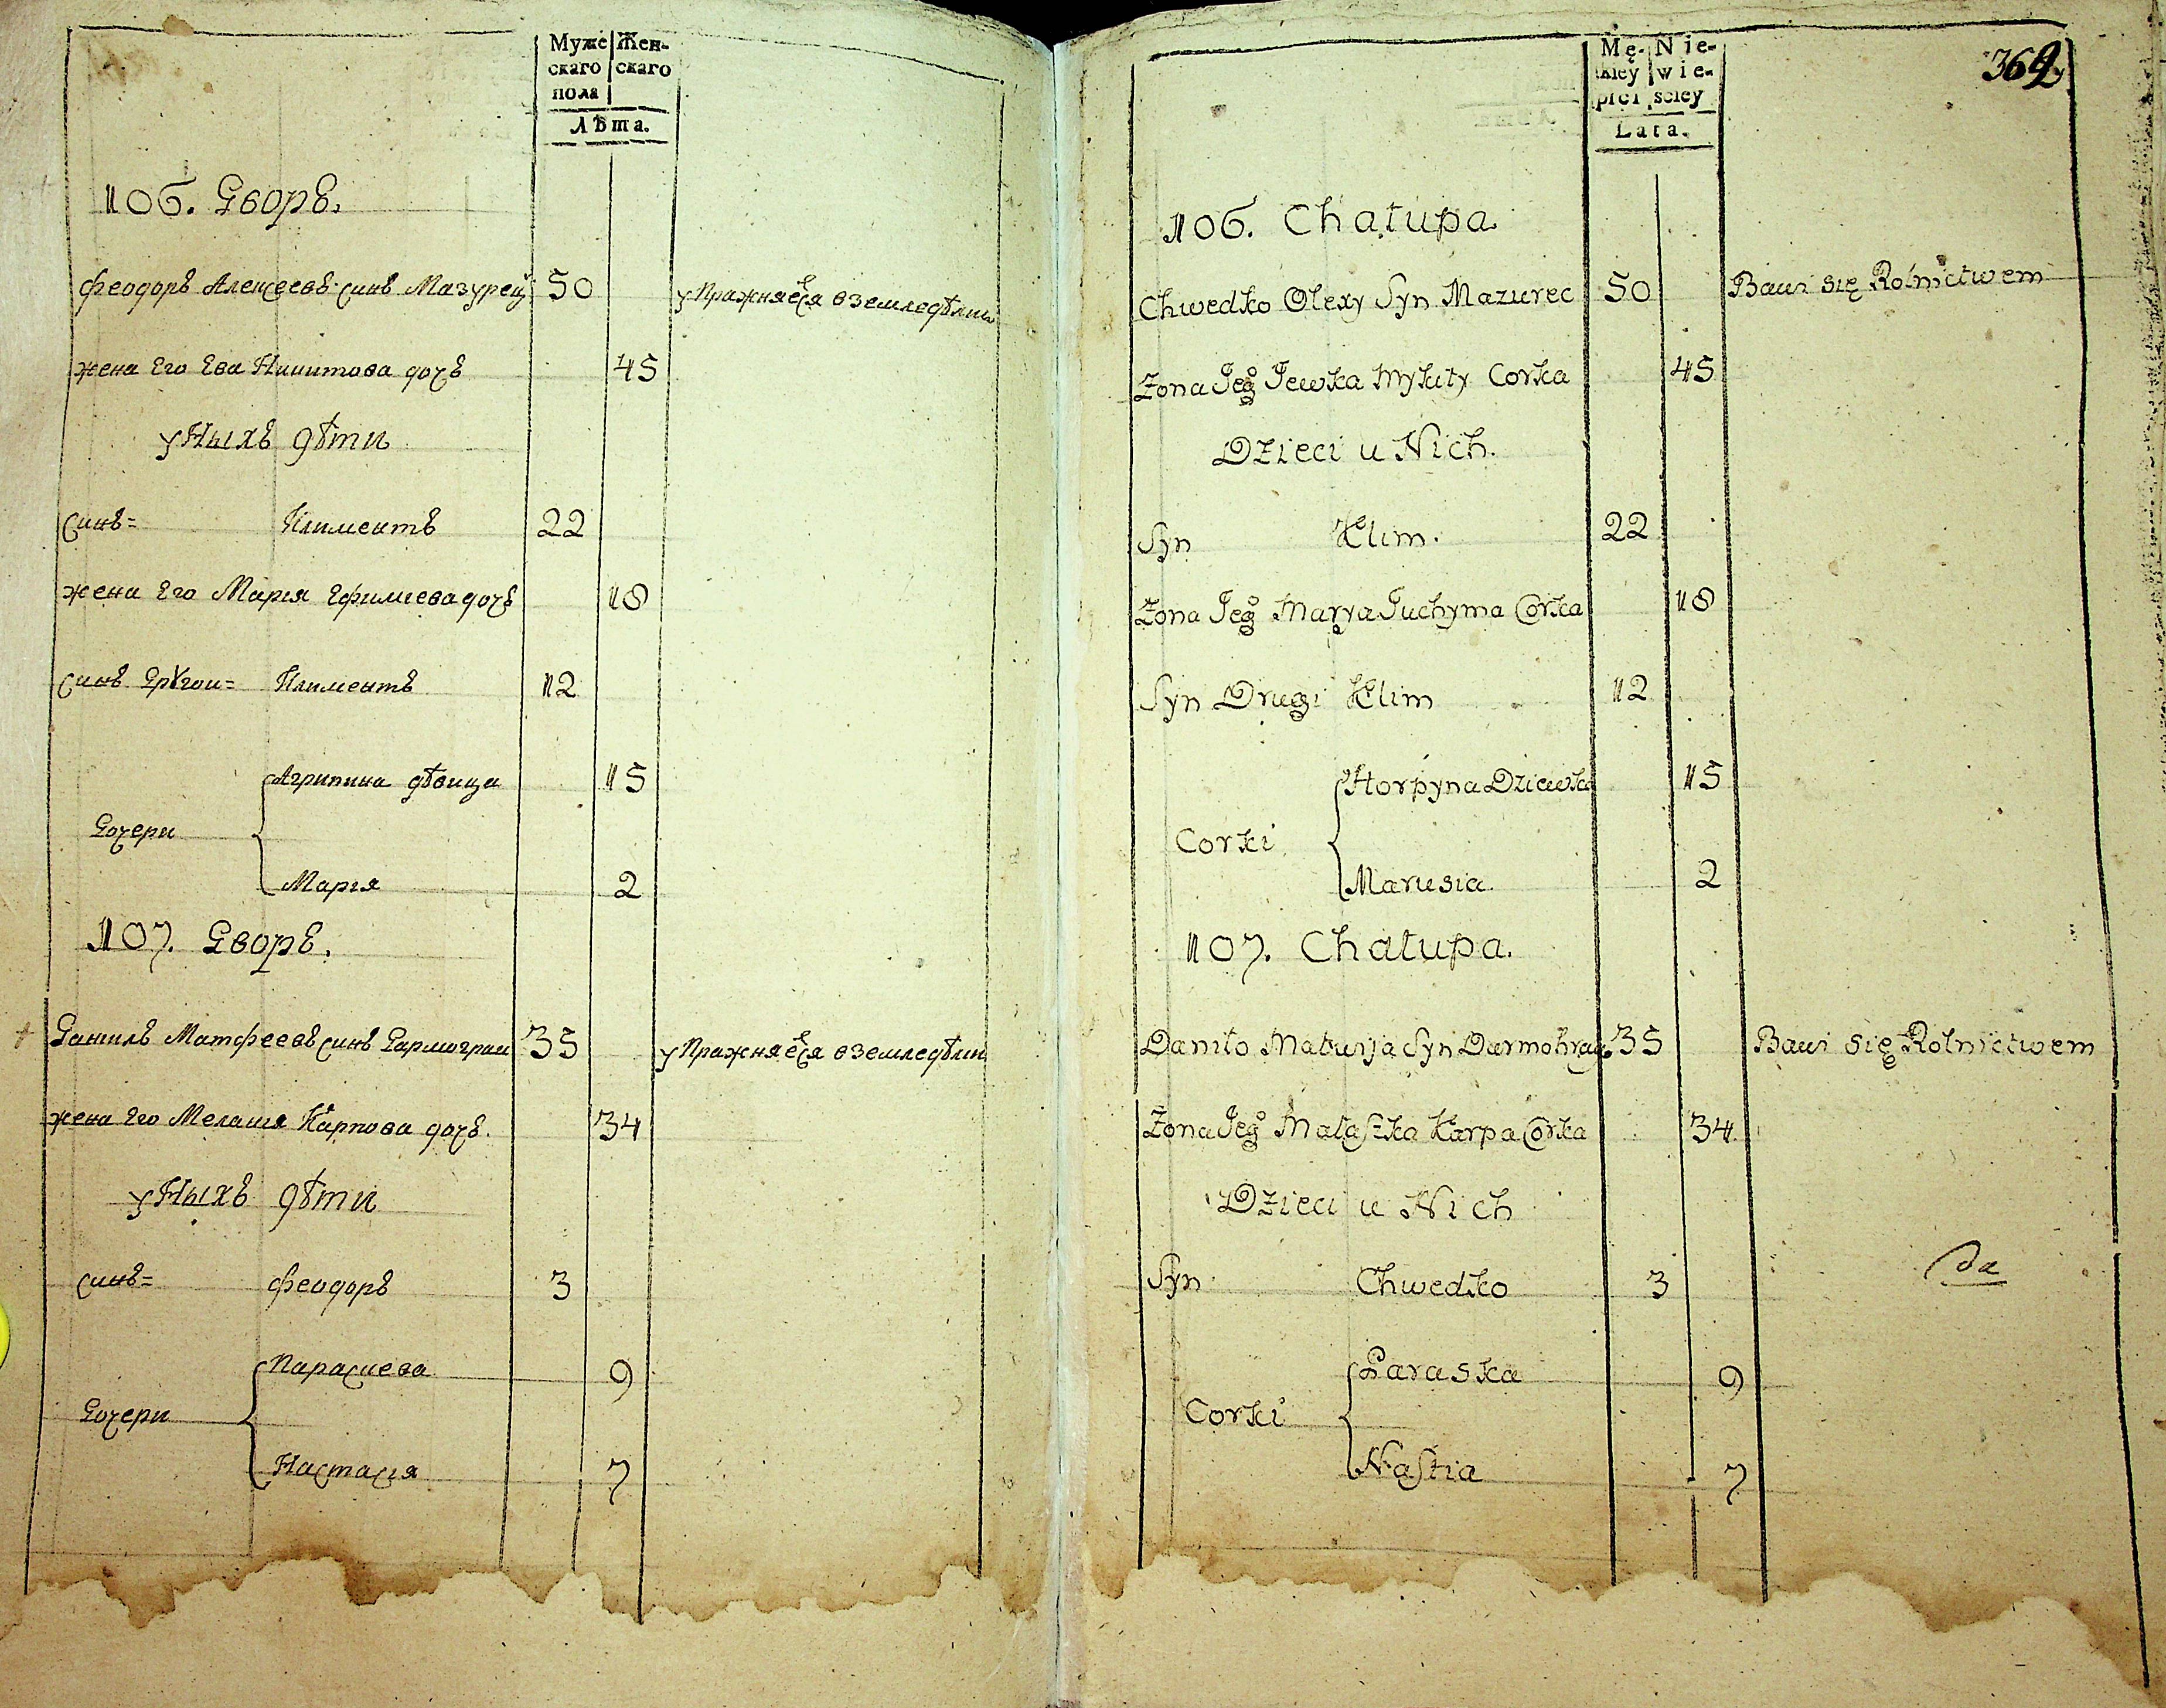 Муже Жен-
скаго скаго
пола
Лѣта.
106. Дворъ.
Феодоръ Алексеевъ синъ Мазурец 50 упражняется в земледѣлии
жена Его Ева Никитова дочъ 45
у Ныхъ дѣти
синъ= Климентъ 22
жена Его Мария Ефимиева дочъ 18
синъ Другои= Климентъ 12
Агрипина дѣвица 15
Дочери
Мария 2
107. Дворъ.
Данилъ Матфеевъ синъ Дармограи 35 упражняется в земледѣлии
жена Его Мелания Карпова дочъ. 34
у Ныхъ дѣти
синъ= Феодоръ 3
Парасиева 9
Дочери
Настасия 7
369
Mę- Nie-
skiey wie-
płci sciey
Lata.
106. Chałupa
Chwedko Olexy Syn Mazurec 50 Bawi się Rolnictwem
Zona Jego Jewka Mykity Corka 45
Dzieci u Nich.
Syn Klim. 22
Zona Jego Marya Juchyma Corka 18
Syn Drugi Klim 12
Horpyna Dziewka 15
Corki
Marusia. 2
107. Chałupa.
Daniło Matwija Syn Darmohray 35 Bawi się Rolnictwem
Zona Jego Małaszka Karpa Corka 34
Dzieci u Nich
Syn Chwedko 3
Paraska 9
Corki
Nastia 7